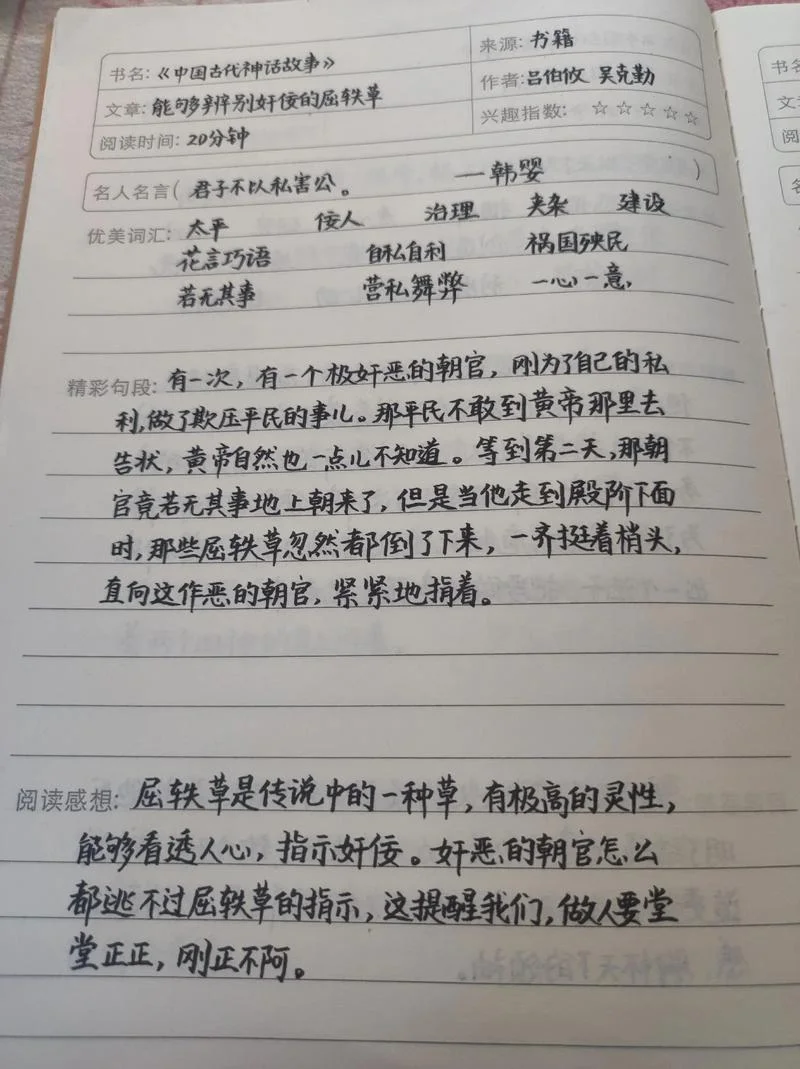 书名:《中国古代神话故事》 来源:书籍
文章:能够辨别奸佞的屈轶草 作者:吕伯攸 吴克勤
阅读时间:20分钟 兴趣指数:☆☆☆☆☆
名人名言( 君子不以私害公。 —韩婴 )
优美词汇: 太平 佞人 治理 夹杂 建设
花言巧语 自私自利 祸国殃民
若无其事 营私舞弊 一心一意
精彩句段: 有一次,有一个极奸恶的朝官,刚为了自己的私
利,做了欺压平民的事儿。那平民不敢到黄帝那里去
告状,黄帝自然也一点儿不知道。等到第二天,那朝
官竟若无其事地上朝来了,但是当他走到殿阶下面
时,那些屈轶草忽然都倒了下来,一齐挺着梢头,
直向这作恶的朝官,紧紧地指着。
阅读感想: 屈轶草是传说中的一种草,有极高的灵性,
能够看透人心,指示奸佞。奸恶的朝官怎么
都逃不过屈轶草的指示,这提醒我们,做人要堂
堂正正,刚正不阿。
书名